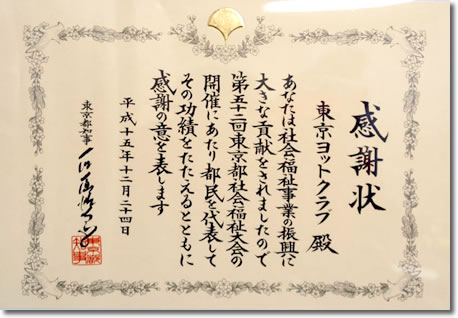 感謝状
東京ヨットクラブ 殿
あなたは社会福祉事業の振興に
大きな貢献をされましたので
第五十二回東京都社会福祉大会の
開催にあたり都民を代表して
その功績をたたえるとともに
感謝の意を表します
平成十五年十二月二十四日
東京都知事 石原慎太郎